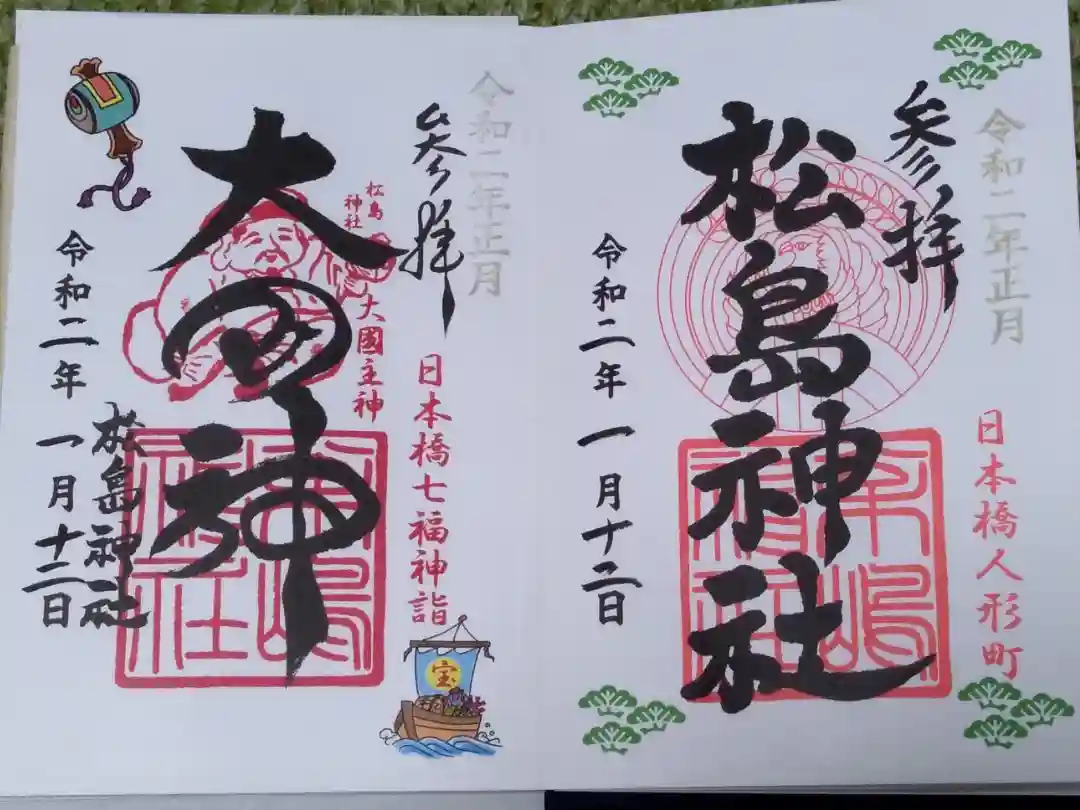 令和二年正月
参拝
日本橋人形町
松島神社
令和二年一月十二日
令和二年正月
参拝
日本橋七福神詣
松島神社
大國主神
大国神
松島神社
令和二年一月十二日
宝